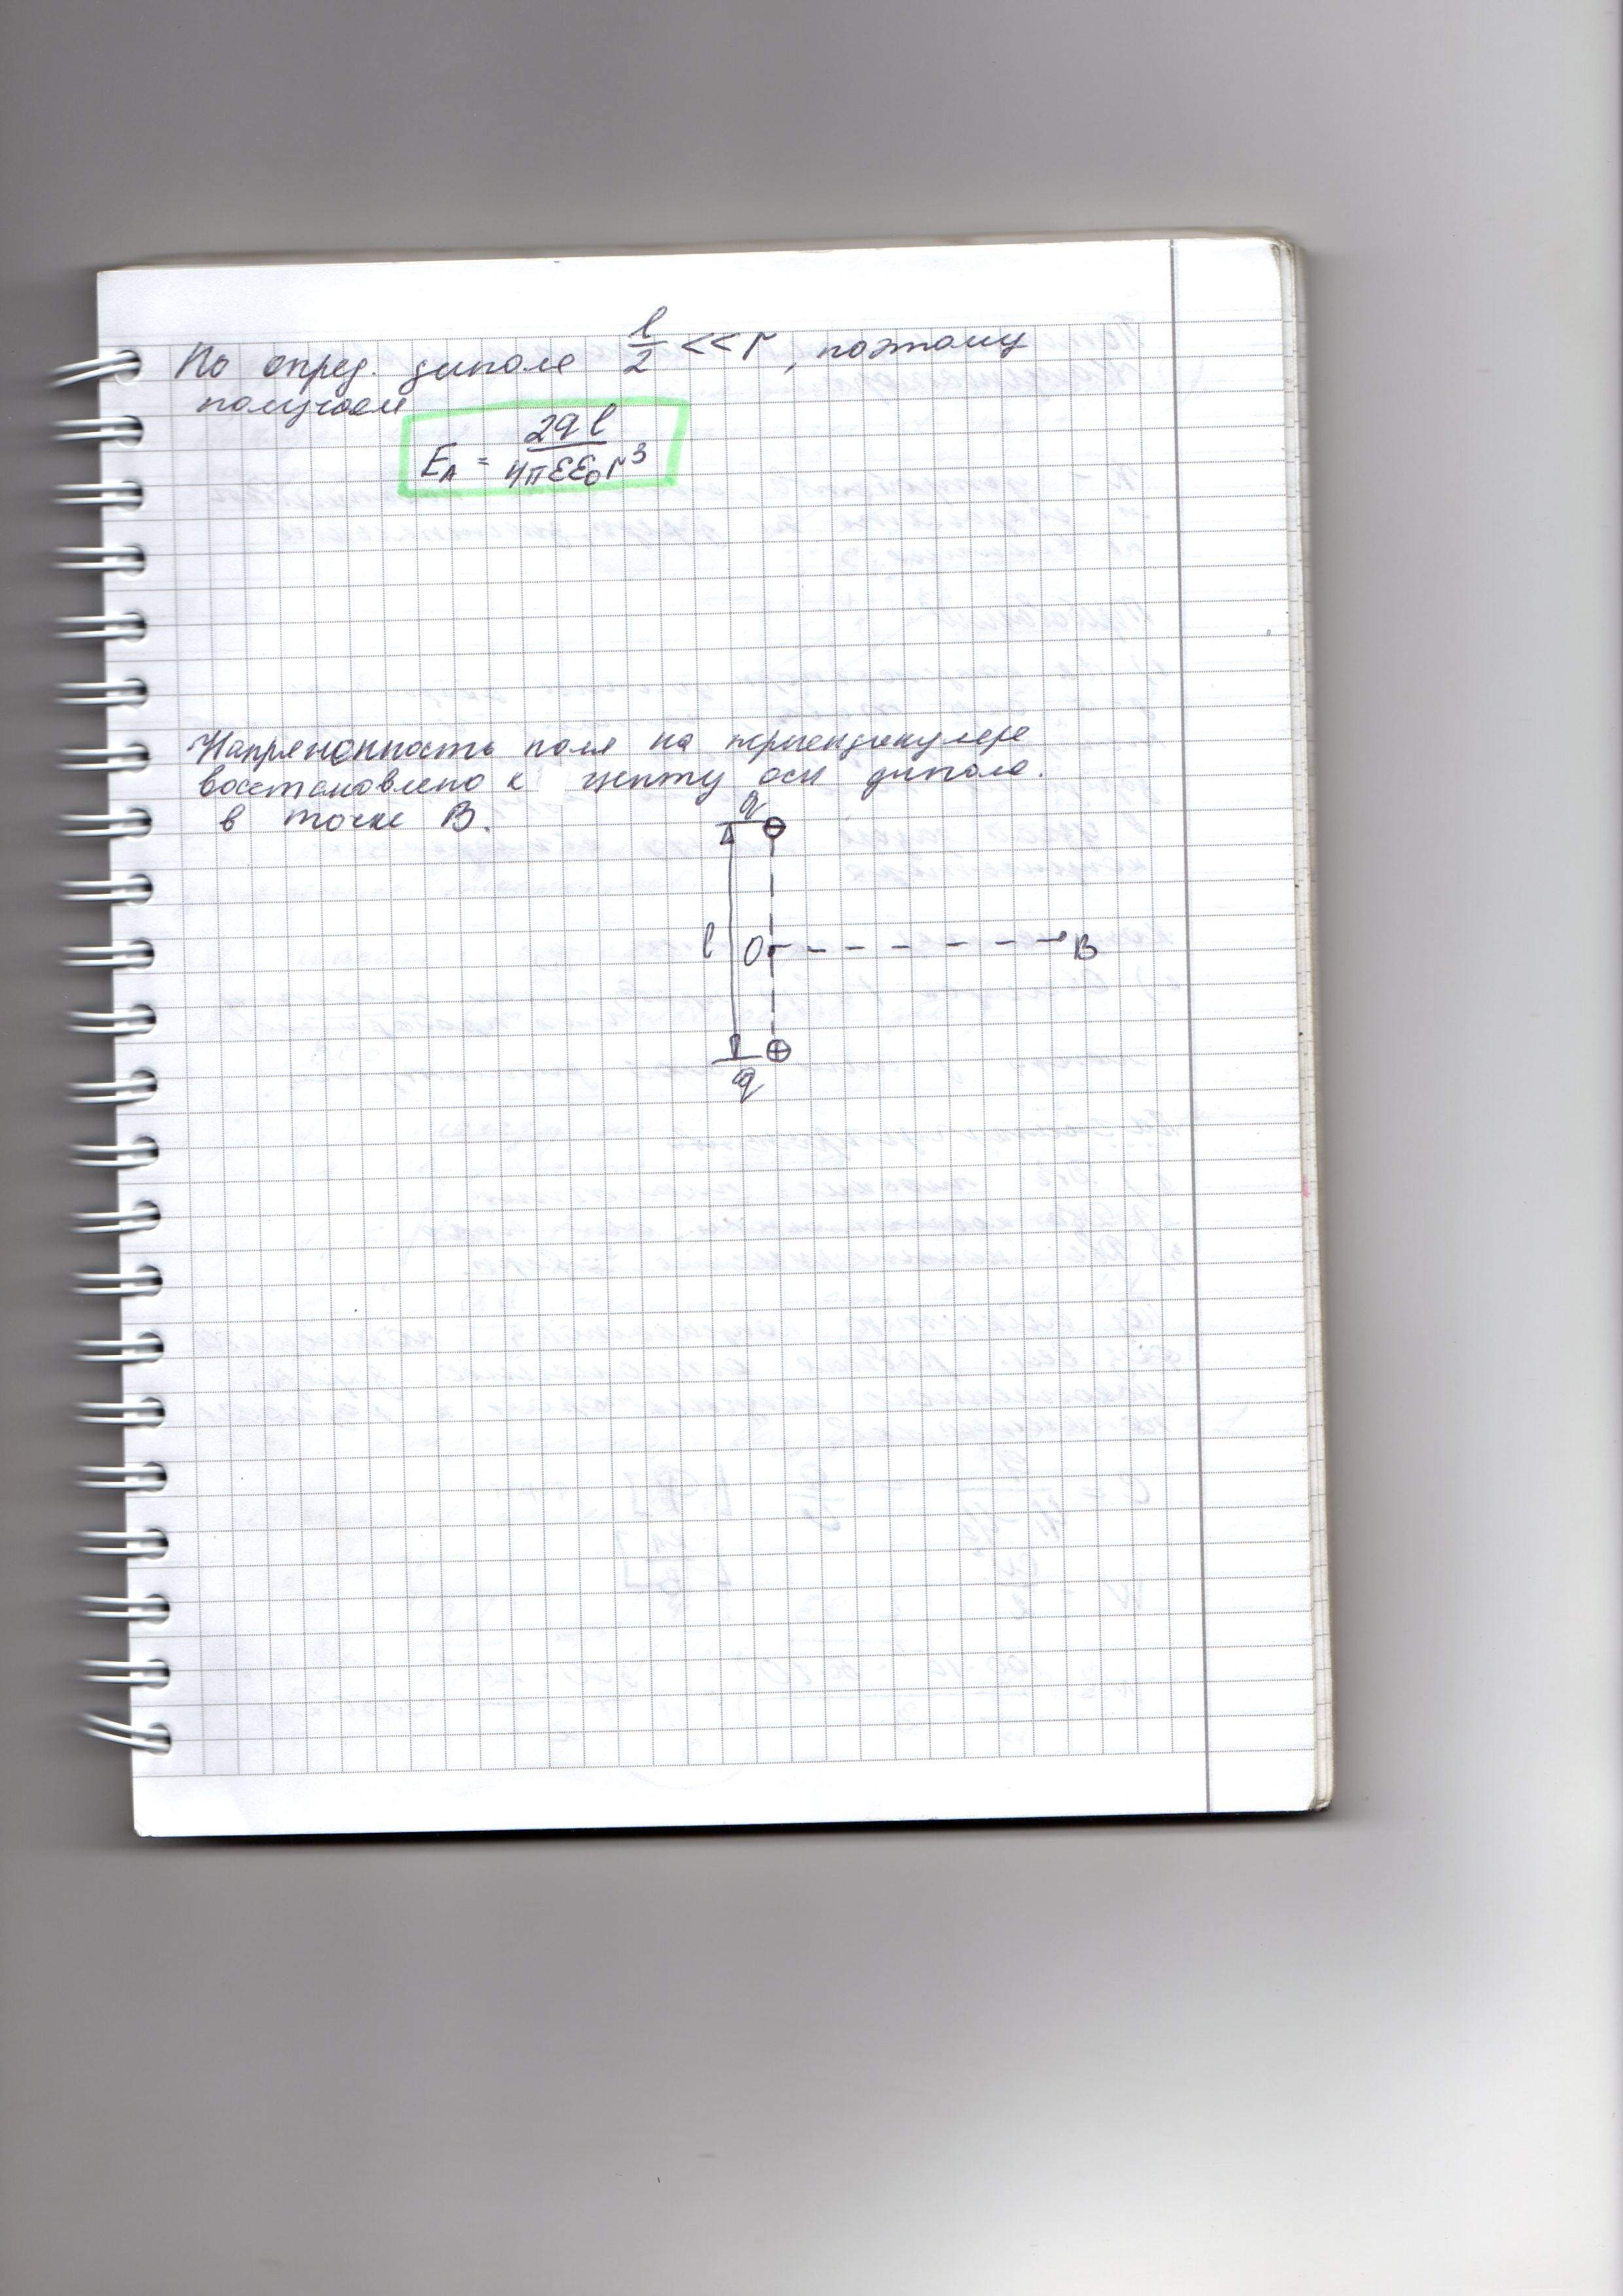 По опред. диполя l/2 << r, поэтому
получаем
E_A = 2ql / 4πεε₀r³
Напряженность поля на перпендикуляре
восстановлено к центру оси диполя.
в точке B.
q ⊖
l O B
⊕
q